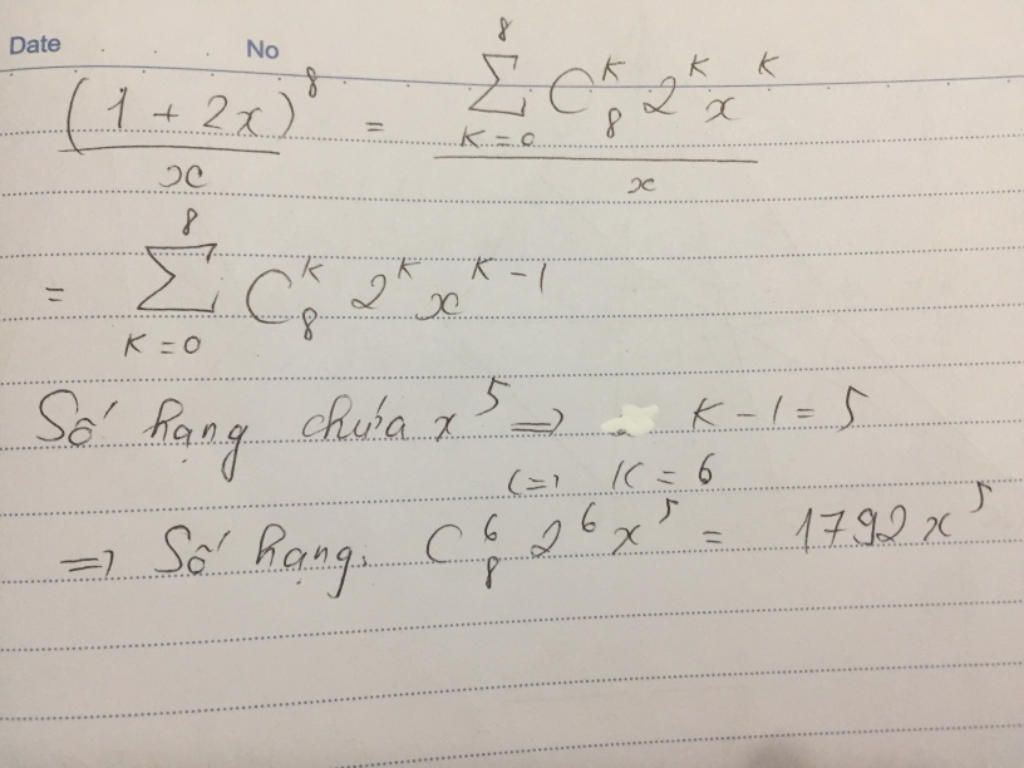 Date No
(1 + 2x)⁸ / x = ∑_{K=0}^{8} C₈ᴷ 2ᴷ xᴷ / x
= ∑_{K=0}^{8} C₈ᴷ 2ᴷ xᴷ⁻¹
Số hạng chứa x⁵ => K - 1 = 5
<=> K = 6
=> Số hạng: C₈⁶ 2⁶ x⁵ = 1792x⁵